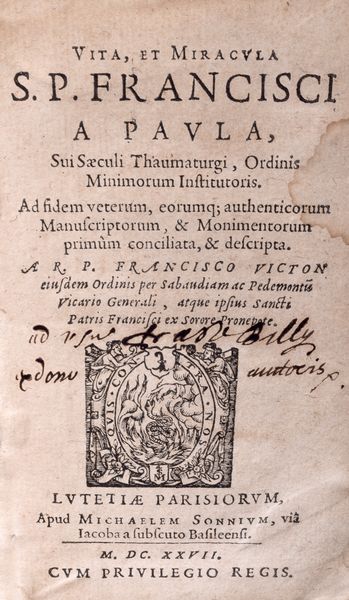 VITA, ET MIRACVLA
S. P. FRANCISCI
A PAVLA,
Sui Sæculi Thaumaturgi, Ordinis
Minimorum Institutoris.
Ad fidem veterum, eorumq; authenticorum
Manuscriptorum, & Monimentorum
primùm conciliata, & descripta.
A R. P. FRANCISCO VICTON
eiusdem Ordinis per Sabaudiam ac Pedemontiũ
Vicario Generali, atque ipsius Sancti
Patris Francisci ex Sorore Pronepote.
ad usum Billy
ex dono autoris
QVIS CONTRA NOS
LVTETIÆ PARISIORVM,
Apud MICHAELEM SONNIVM, viâ
Iacobæa sub scuto Basileensi.
M. DC. XXVII.
CVM PRIVILEGIO REGIS.